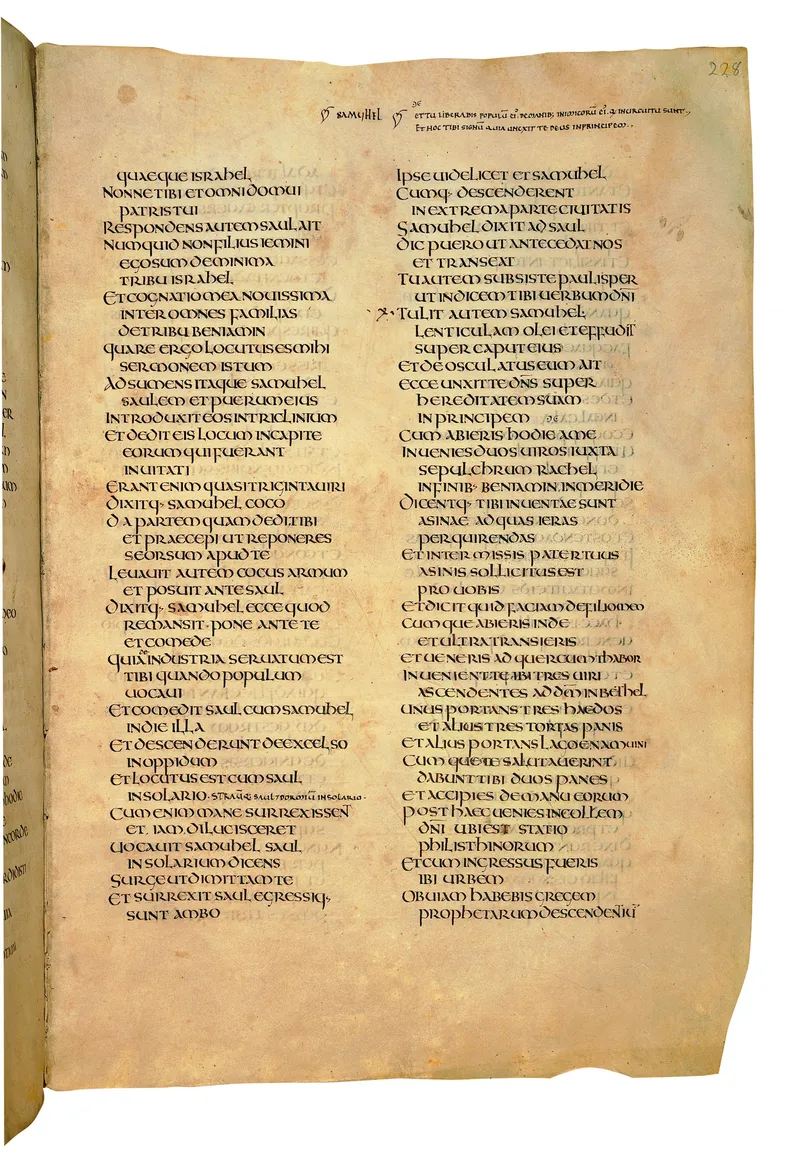 228
SAMUHEL
ET TU LIBERABIS POPULU EI DE OMANIB; INIMICORU EI Q INCIRCUITU SUNT
ET HOC TIBI SIGNU QUIA UNXIT TE DEUS IN PRINCIPEM
QUAEQUE ISRAHEL
NONNE TIBI ET OMNI DOMUI
PATRIS TUI
RESPONDENS AUTEM SAUL AIT
NUMQUID NON FILIUS IEMINI
EGO SUM DE MINIMA
TRIBU ISRAHEL
ET COGNATIO MEA NOUISSIMA
INTER OMNES FAMILIAS
DE TRIBU BENIAMIN
QUARE ERGO LOCUTUS ES MIHI
SERMONEM ISTUM
ADSUMENS ITAQUE SAMUHEL
SAULEM ET PUERUM EIUS
INTRODUXIT EOS IN TRICLINIUM
ET DEDIT EIS LOCUM IN CAPITE
EORUM QUI FUERANT
INUITATI
ERANT ENIM QUASI TRIGINTA UIRI
DIXITQ· SAMUHEL COCO
DA PARTEM QUAM DEDI TIBI
ET PRAECEPI UT REPONERES
SEORSUM APUD TE
LEUAUIT AUTEM COCUS ARMUM
ET POSUIT ANTE SAUL
DIXITQ· SAMUHEL ECCE QUOD
REMANSIT· PONE ANTE TE
ET COMEDE
QUIA DE INDUSTRIA SERUATUM EST
TIBI QUANDO POPULUM
UOCAUI
ET COMEDIT SAUL CUM SAMUHEL
IN DIE ILLA
ET DESCENDERUNT DE EXCELSO
IN OPPIDUM
ET LOCUTUS EST CUM SAUL
IN SOLARIO· STRAUQ; SAUL 7 DORMIU IN SOLARIO·
CUM ENIM MANE SURREXISSENT
ET IAM DILUCISCERET
UOCAUIT SAMUHEL SAUL
IN SOLARIUM DICENS
SURGE UT DIMITTAM TE
ET SURREXIT SAUL EGRESSIQ·
SUNT AMBO
IPSE UIDELICET ET SAMUHEL
CUMQ· DESCENDERENT
IN EXTREMA PARTE CIUITATIS
SAMUHEL DIXIT AD SAUL
DIC PUERO UT ANTECEDAT NOS
ET TRANSEAT
TU AUTEM SUBSISTE PAULISPER
UT INDICEM TIBI UERBUM DNI
TULIT AUTEM SAMUHEL
LENTICULAM OLEI ET EFFUDIT
SUPER CAPUT EIUS
ET DEOSCULATUS EUM AIT
ECCE UNXIT TE DNS SUPER
HEREDITATEM SUAM
IN PRINCIPEM
CUM ABIERIS HODIE A ME
INUENIES DUOS UIROS IUXTA
SEPULCHRUM RACHEL
IN FINIB· BENIAMIN IN MERIDIE
DICENTQ· TIBI INUENTAE SUNT
ASINAE AD QUAS IERAS
PERQUIRENDAS
ET INTERMISSIS PATER TUUS
ASINIS SOLLICITUS EST
PRO UOBIS
ET DICIT QUID FACIAM DE FILIO MEO
CUMQUE ABIERIS INDE
ET ULTRA TRANSIERIS
ET UENERIS AD QUERCUM THABOR
INUENIENT TE IBI TRES UIRI
ASCENDENTES AD DM IN BETHEL
UNUS PORTANS TRES HAEDOS
ET ALIUS TRES TORTAS PANIS
ET ALIUS PORTANS LAGOENAM UINI
CUMQUE TE SALUTAUERINT
DABUNT TIBI DUOS PANES
ET ACCIPIES DE MANU EORUM
POST HAEC UENIES IN COLLEM
DNI UBI EST STATIO
PHILISTHINORUM
ET CUM INGRESSUS FUERIS
IBI URBEM
OBUIAM HABEBIS GREGEM
PROPHETARUM DESCENDENTIU